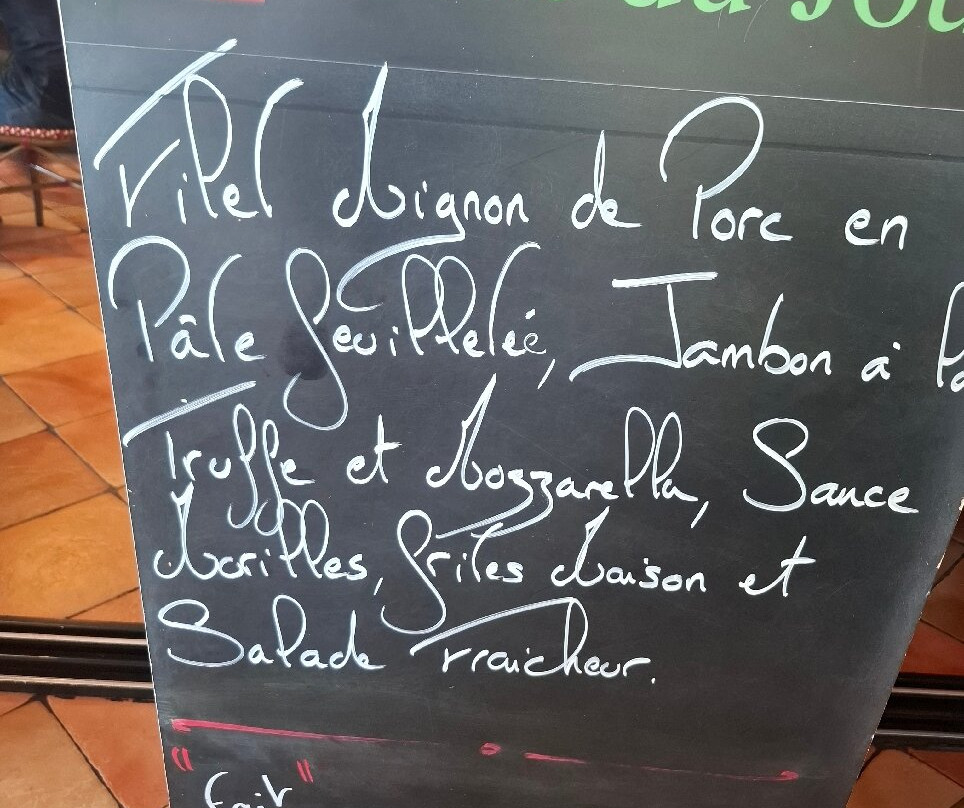 du Jou
Filet Mignon de Porc en
Pâte feuilletée, Jambon à la
Truffe et Mozzarella, Sauce
Morilles, frites Maison et
Salade Fraicheur.
"fait"